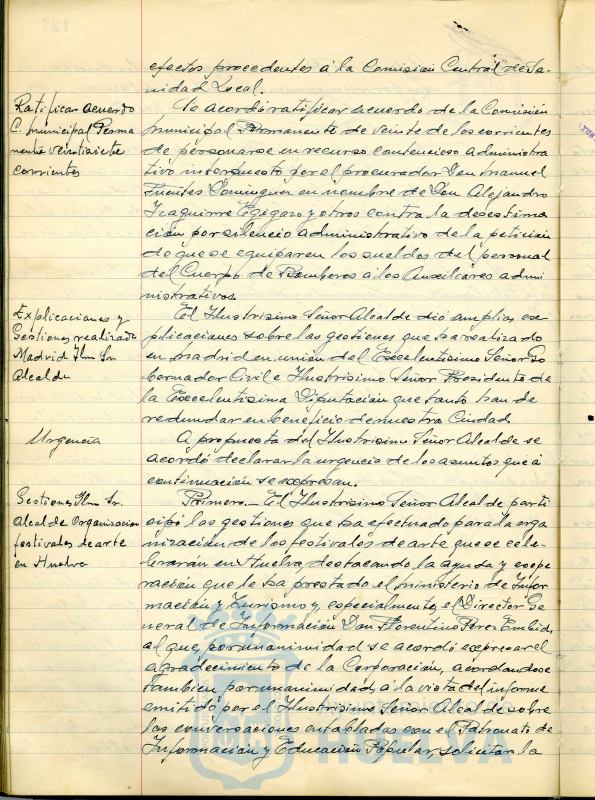 efectos procedentes á la Comisión Central de Sa-
nidad Local.
Ratificar acuerdo
C. municipal Perma
nente veintisiete
corrientes
Se acordó ratificar acuerdo de la Comisión
municipal Permanente de veinte de los corrientes
de personarse en recurso contencioso administra
tivo interpuesto por el procurador Don Manuel
Fuentes Dominguez en nombre de Don Alejandro
Izaguirre Egigaro y otros contra la desestima
ción por silencio administrativo de la petición
de que se equiparen los sueldos del personal
del Cuerpo de Bomberos á los Auxiliares admi
nistrativos.
Explicaciones y
Gestiones realizada
Madrid Ilmo Sr.
Alcalde
El Ilustrisimo Señor Alcalde dió amplias ex
plicaciones sobre las gestiones que ha realizado
en Madrid en union del Excelentisimo Señor Go
bernador Civil e Ilustrisimo Señor Presidente de
la Excelentisima Diputación que tanto han de
redundar en beneficio de nuestra Ciudad.
Urgencia
A propuesta del Ilustrisimo Señor Alcalde se
acordó declarar la urgencia de los asuntos que á
continuación se expresan.
Gestiones Ilmo Sr.
Alcalde organizacion
festivales de arte
en Huelva
Primero.- El Ilustrisimo Señor Alcalde parti
cipó las gestiones que ha efectuado para la orga
nización de los festivales de arte que se cele-
brarán en Huelva, destacando la ayuda y coope
ración que le ha prestado el ministerio de Infor
mación y Turismo y especialmente, el Director Ge
neral de Información Don Florentino Perez Embid,
al que, por unanimidad se acordó expresar el
agradecimiento de la Corporación, acordandose
tambien por unanimidad, á la vista del informe
emitido por el Ilustrisimo Señor Alcalde sobre
las conversaciones entabladas con el Patronato de
Información y Educación Popular, solicitar la
HUELVA